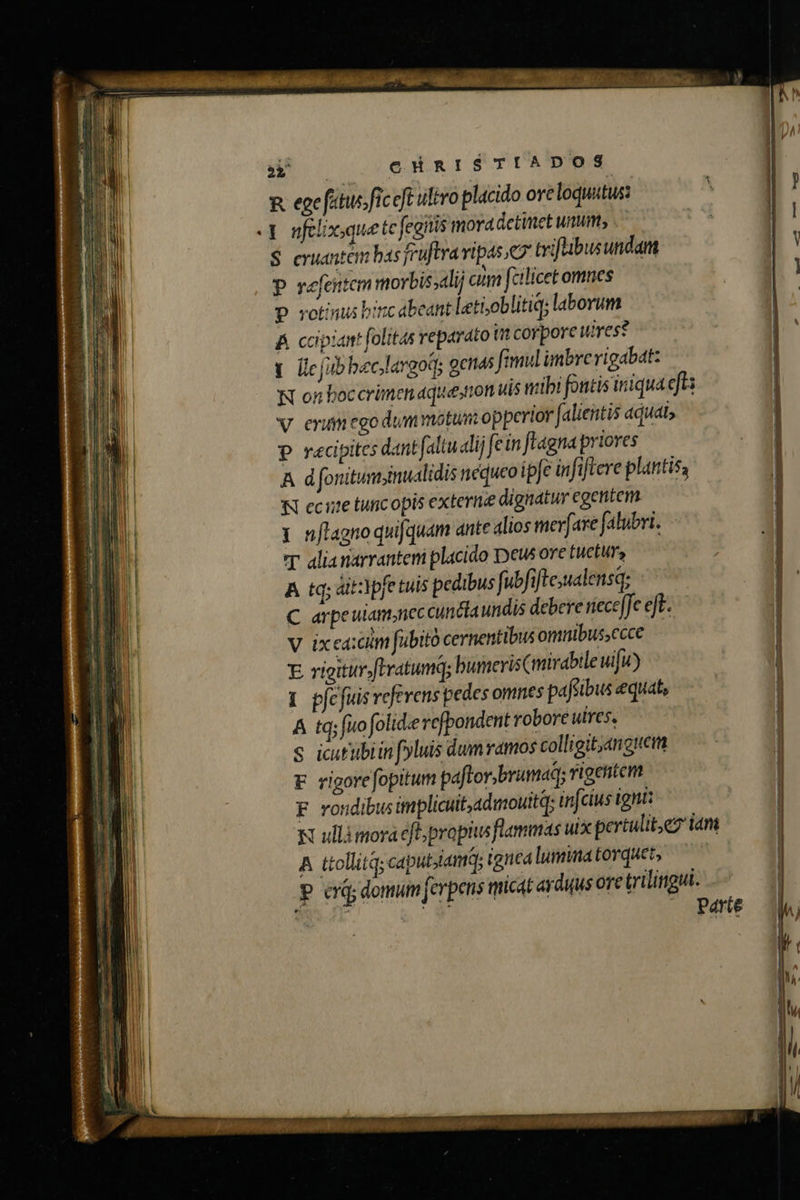 22 CHRISTIADOS
R ege fatus, sic est ultro placido ore loquutus:
I nfelix, quæ te segnis mora detinet unum,
S eruantem has frustra ripas, & tristibus undam
P ræsentem morbis, alij cum scilicet omnes
P rotinus hinc abeant læti, oblitiq; laborum
A ccipiant solitas reparato in corpore uires?
I lle sub hæc, largoq; genas simul imbre rigabat:
N on hoc crimen aquæ, non uis mihi fontis iniqua est:
V erum ego dum motum opperior salientis aquai,
P ræcipites dant saltu alij se in stagna priores
A d sonitum, inualidis nequeo ipse insistere plantis,
N ec me tunc opis externæ dignatur egentem
I n stagno quisquam ante alios mersare salubri.
T alia narrantem placido Deus ore tuetur,
A tq; ait: Ipse tuis pedibus subsiste, ualensq;
C arpe uiam, nec cuncta undis debere necesse est.
V ix ea: cùm subitò cernentibus omnibus, ecce
E rigitur, stratumq; humeris (mirabile uisu)
I pse suis referens pedes omnes passibus æquat,
A tq; suo solidæ respondent robore uires.
S icut ubi in syluis dum ramos colligit, anguem
F rigore sopitum pastor, brumaq; rigentem
F rondibus implicuit, admouitq; inscius igni:
N ulla mora est, propius flammas uix pertulit, & iam
A ttollitq; caput, iamq; ignea lumina torquet,
P erq; domum serpens micat arduus ore trilingui.
Parte